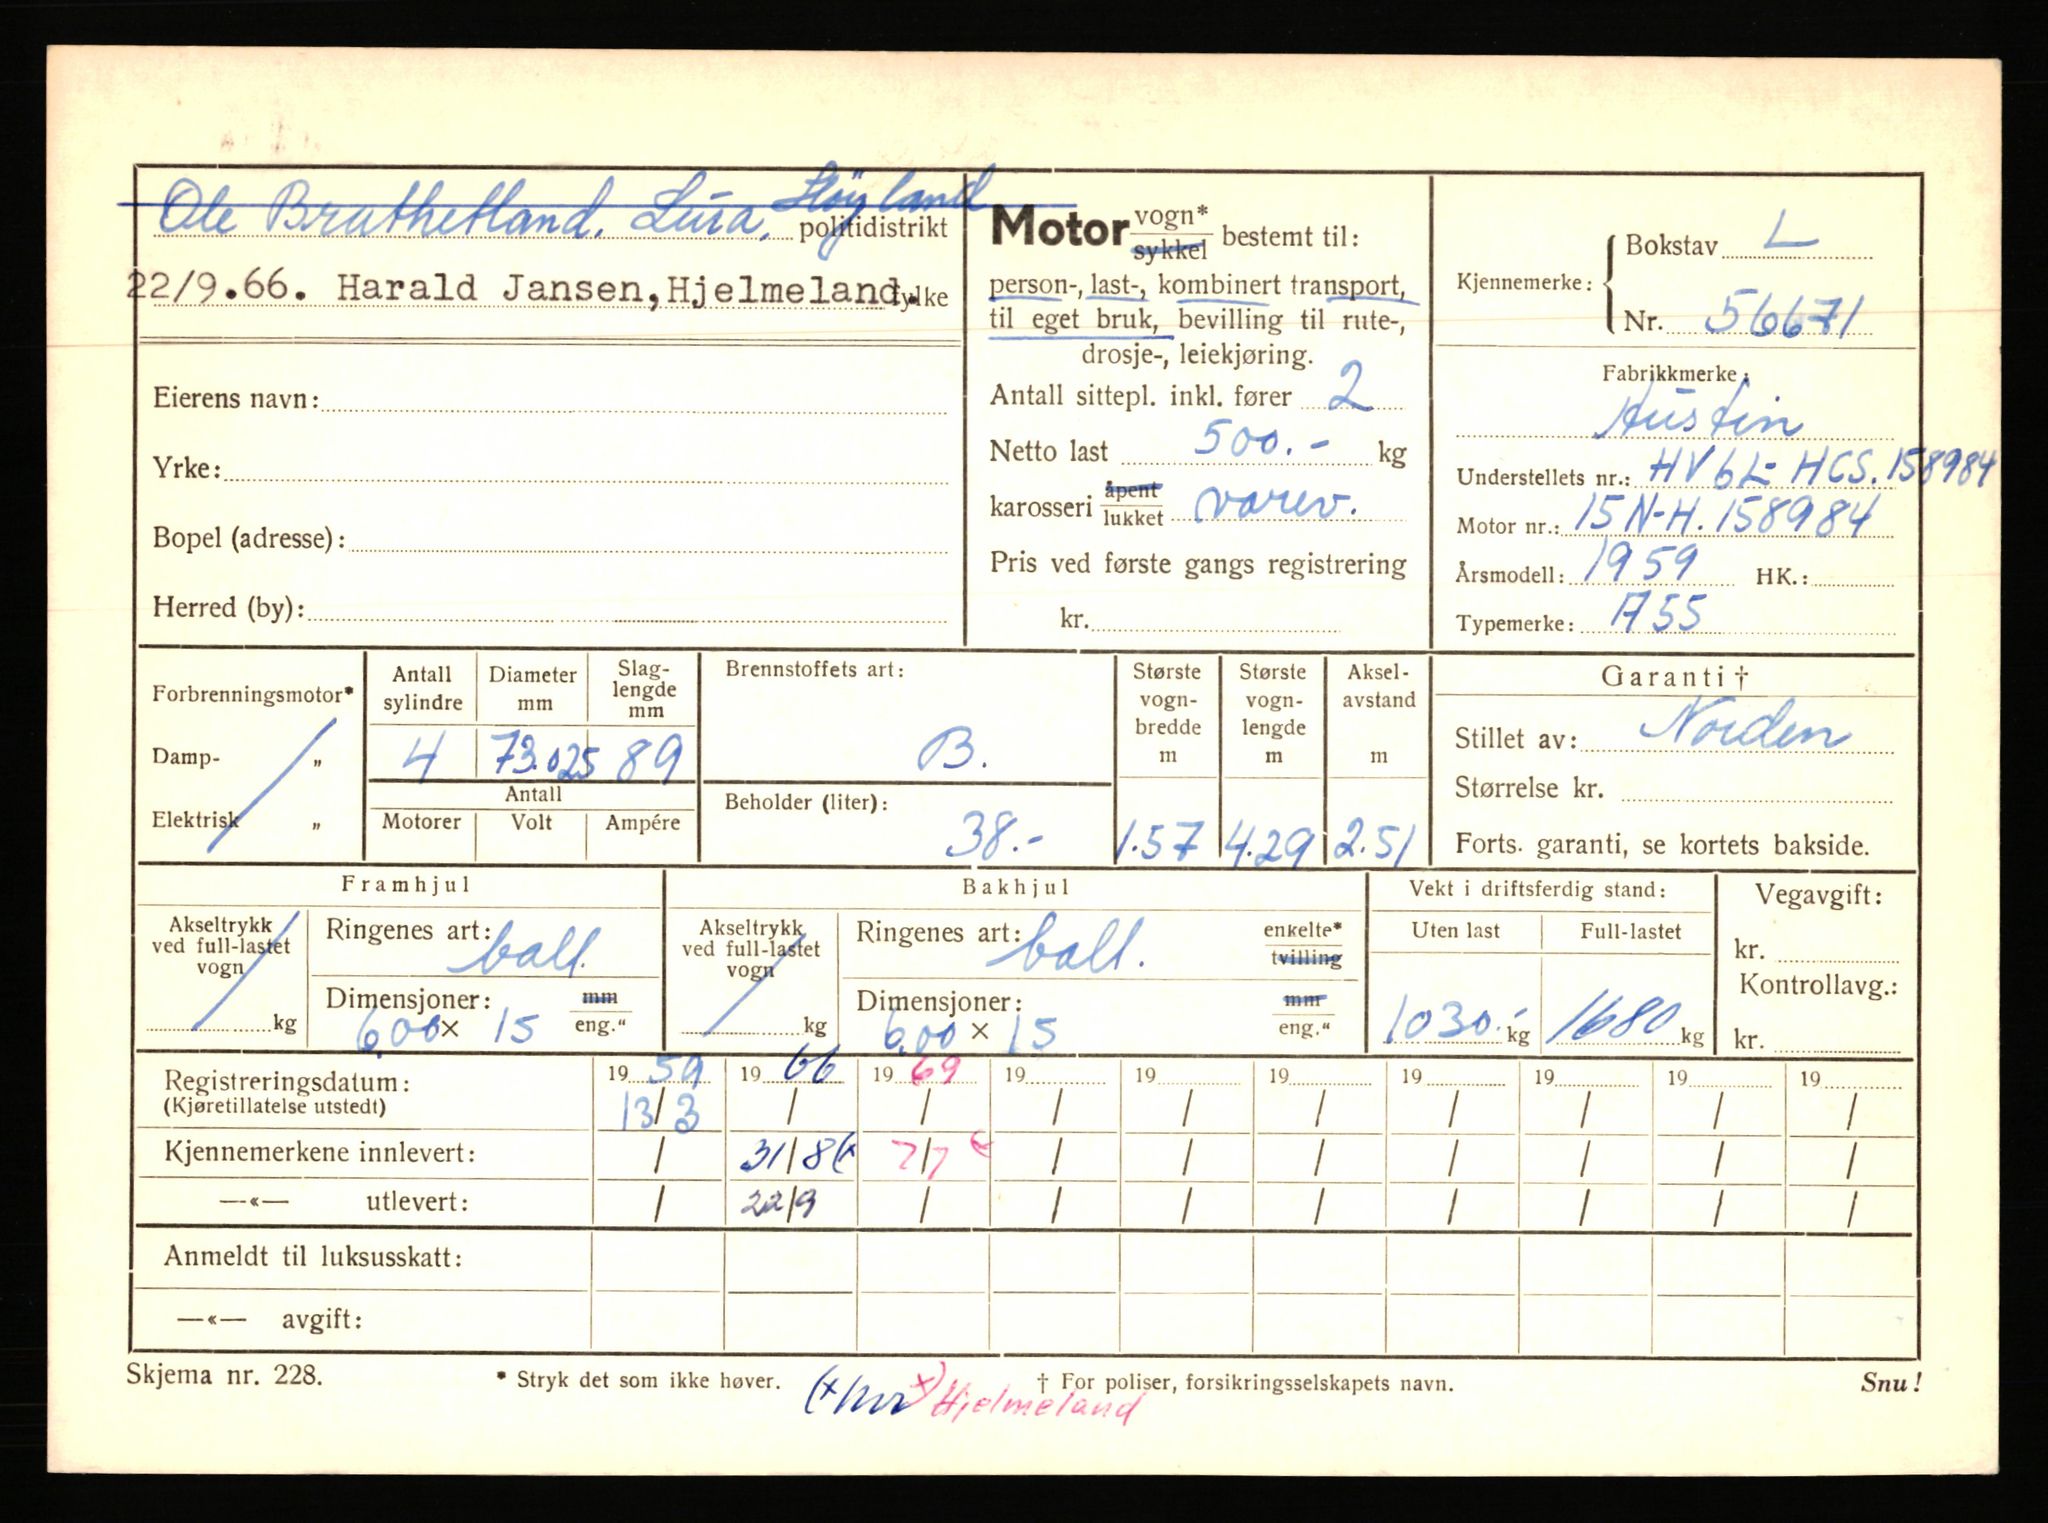 Ole Bruthetland. Lura, Høyland
politidistrikt
22/9.66. Harald Jansen, Hjelmeland.
fylke
Eierens navn:
Yrke:
Bopel (adresse):
Herred (by):
Motor vogn* sykkel bestemt til:
person-, last-, kombinert transport,
til eget bruk, bevilling til rute-,
drosje-, leiekjøring.
Antall sittepl. inkl. fører 2
Netto last 500.- kg
karosseri åpent lukket varev.
Pris ved første gangs registrering
kr.
Kjennemerke: Bokstav L
Nr. 56671
Fabrikkmerke:
Austin
Understellets nr.: HV6L-HCS.158984
Motor nr.: 15N-H.158984
Årsmodell: 1959 HK.:
Typemerke: A55
Forbrenningsmotor*
Damp- „
Elektrisk „
Antall sylindre Diameter mm Slaglengde mm
4 73.025 89
Antall
Motorer Volt Ampére
Brennstoffets art:
B.
Beholder (liter):
38.-
Største vogn-bredde m
1.57
Største vogn-lengde m
4.29
Aksel-avstand m
2.51
Garanti †
Stillet av: Norden
Størrelse kr.
Forts. garanti, se kortets bakside.
Framhjul
Akseltrykk ved full-lastet vogn
kg
Ringenes art: ball.
Dimensjoner: mm eng."
6,00 × 15
Bakhjul
Akseltrykk ved full-lastet vogn
kg
Ringenes art: ball. enkelte* tvilling
Dimensjoner: mm eng."
6,00 × 15
Vekt i driftsferdig stand:
Uten last Full-lastet
1030.- kg 1680 kg
Vegavgift:
kr.
Kontrollavg.:
kr.
Registreringsdatum: 1959 1966 1969 19 19 19 19 19 19 19
(Kjøretillatelse utstedt) 13/3 / / / / / / / / /
Kjennemerkene innlevert: / 31/8 (x 7/7 x / / / / / / /
—«— utlevert: / 22/9 / / / / / / / /
Anmeldt til luksusskatt:
—«— avgift:
Skjema nr. 228. * Stryk det som ikke høver. † For poliser, forsikringsselskapets navn. Snu!
x) Hjelmeland